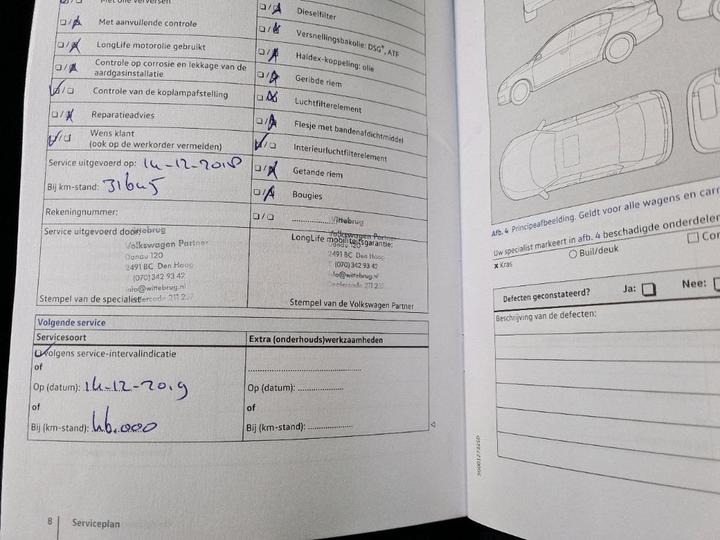 Met olie verversen
Met aanvullende controle
LongLife motorolie gebruikt
Controle op corrosie en lekkage van de
aardgasinstallatie
Controle van de koplampafstelling
Reparatieadvies
Wens klant
(ook op de werkorder vermelden)
Service uitgevoerd op: 14-12-2018
Bij km-stand: 31645
Rekeningnummer:
Service uitgevoerd door:
Wittebrug
Volkswagen Partner
Donau 120
2491 BC Den Haag
(070) 342 93 42
info@wittebrug.nl
Stempel van de specialist
Dieselfilter
Versnellingsbakolie: DSG®, ATF
Haldex-koppeling: olie
Geribde riem
Luchtfilterelement
Flesje met bandenafdichtmiddel
Interieurluchtfilterelement
Getande riem
Bougies
LongLife mobiliteitsgarantie:
Wittebrug
Volkswagen Partner
Donau 120
2491 BC Den Haag
(070) 342 93 42
info@wittebrug.nl
Stempel van de Volkswagen Partner
Volgende service
Servicesoort
Volgens service-intervalindicatie
of
Op (datum): 14-12-2019
of
Bij (km-stand): 46.000
Extra (onderhouds)werkzaamheden
Op (datum):
of
Bij (km-stand):
8 Serviceplan
Afb. 4 Principeafbeelding. Geldt voor alle wagens en
Uw specialist markeert in afb. 4 beschadigde
x Kras
Buil/deuk
Defecten geconstateerd? Ja: Nee:
Beschrijving van de defecten: